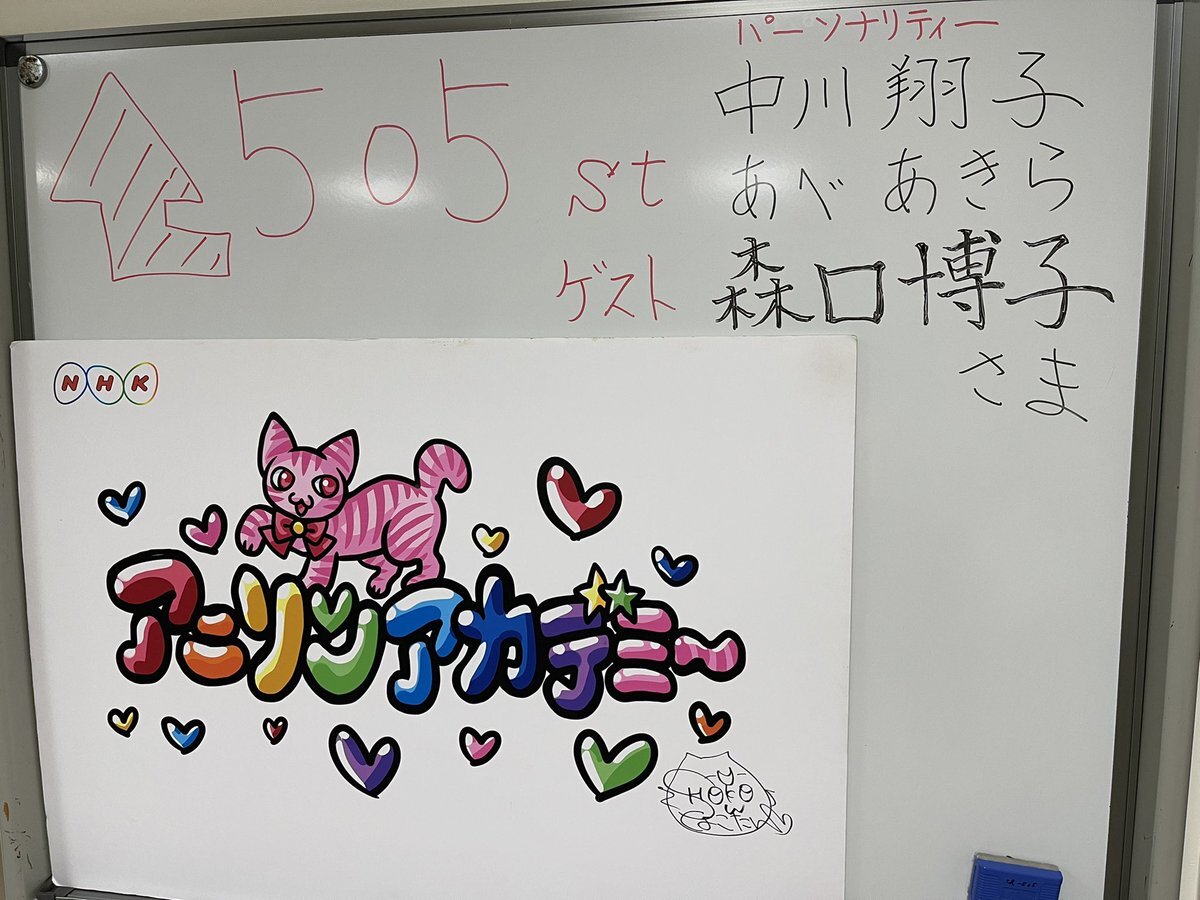 パーソナリティー
505 st
中川 翔子
あべ あきら
ゲスト 森口博子
さま
NHK
アニリンアカデミ〜
SHOKO
しょこたん